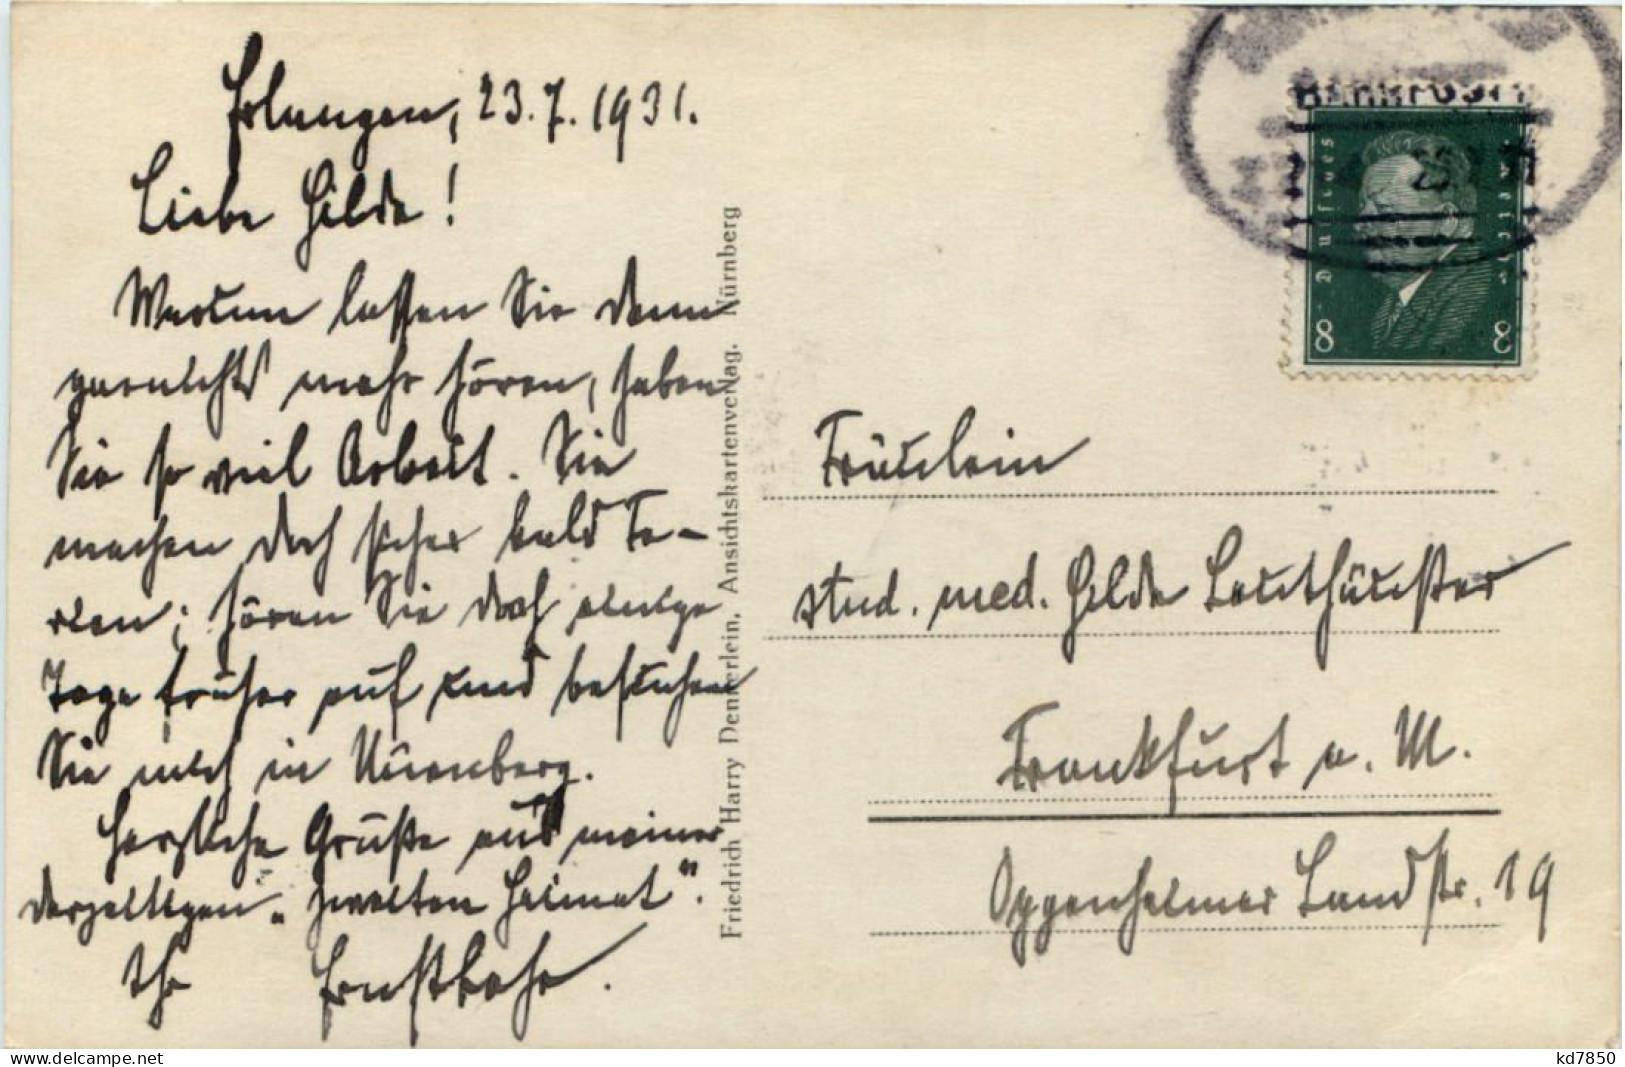 Erlangen, 23.7.1931.
Liebe Hilde!
Warum lassen Sie denn
garnichts mehr hören, haben
Sie so viel Arbeit. Sie
machen doch sicher bald Fe-
rien; hören Sie doch einige
Tage früher auf und besuchen
Sie mich in Nürnberg.
Herzliche Grüße aus meiner
derzeitigen „zweiten Heimat".
Ihr
Friedrich Harry Dennerlein, Ansichtskartenverlag. Nürnberg
Bahnpost
Deutsches
8 8
Fräulein
stud. med. Hilde Leuthäuser
Frankfurt a. M.
Oppenheimer Landstr. 19
www.delcampe.net
kd7850